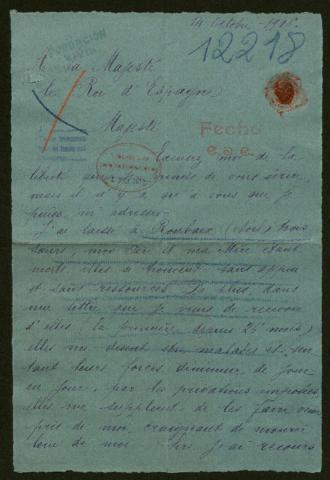 14 Octobre - 1916.
12218
A Sa Majesté
le Roi d'Espagne
Majesté
Fecho
Excusez moi de la
liberté que je prends de vous écrire
mais il n'y a qu'à vous que je
puisse m'adresser
J'ai laissé à Roubaix (Nord) trois
sœurs mon Père et ma Mère étant
morts, elles se trouvent sans appui
et sans ressources De plus dans
une lettre que je viens de recevoir
d'elles (la première depuis 26 mois)
elles me disent être malades et sentant
leurs forces diminuer de jour
en jour, par les privations imposées
elles me supplient de les faire venir
près de moi, craignant de mourir
loin de moi Sire j'ai recours